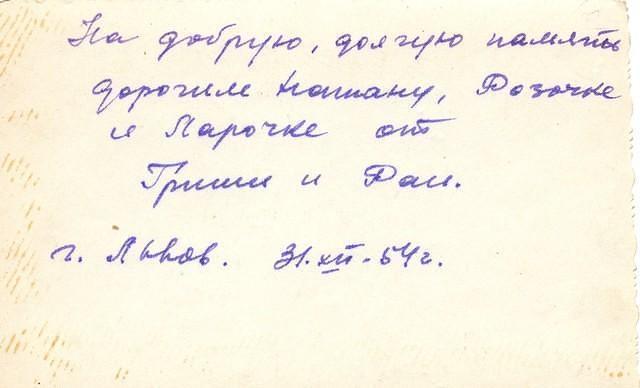 На добрую, долгую память
дорогим Натану, Розочке
и Ларочке от
Гриши и Раи.
г. Львов. 31.XII-54г.